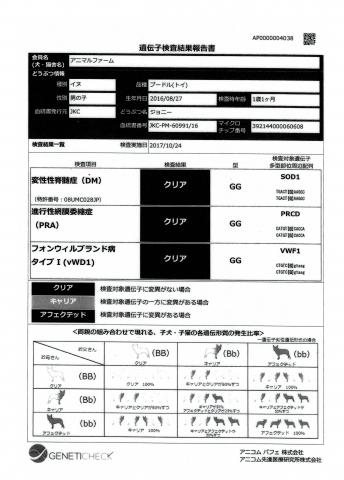 AP0000004038
遺伝子検査結果報告書
会員名
(犬・猫舎名)
アニマルファーム
どうぶつ情報
種別 イヌ 品種 プードル(トイ)
性別 男の子 生年月日 2016/08/27 検査時年齢 1歳1ヶ月
血統書発行元 JKC どうぶつ名 ジョニー
血統書番号 JKC-PM-60991/16 マイクロチップ番号 392144000060608
検査結果一覧 検査実施日 2017/10/24
検査項目 検査結果 型 検査対象遺伝子
多型部位周辺配列
変性性脊髄症(DM)
(特許番号:08UMC028JP)
クリア GG SOD1
進行性網膜委縮症
(PRA)
クリア GG PRCD
フォンウィルブランド病
タイプⅠ(vWD1)
クリア GG VWF1
クリア 検査対象遺伝子に変異がない場合
キャリア 検査対象遺伝子の一方に変異がある場合
アフェクテッド 検査対象遺伝子に変異がある場合
<両親の組み合わせで現れる、子犬・子猫の各遺伝形質の発生比率>
一遺伝子劣性遺伝形式の場合
お父さん
お母さん
(BB)
クリア
(Bb)
キャリア
(bb)
アフェクテッド
(BB)
クリア
クリア 100%
キャリアとクリアが50%ずつ
キャリア 100%
(Bb)
キャリア
キャリアとクリアが50%ずつ
キャリアが50%
アフェクテッドとクリアが25%ずつ
キャリアとアフェクテッドが
50%ずつ
(bb)
アフェクテッド
キャリア 100%
キャリアとアフェクテッドが
50%ずつ
アフェクテッド 100%
GENETICHECK
アニコム パフェ 株式会社
アニコム先進医療研究所株式会社